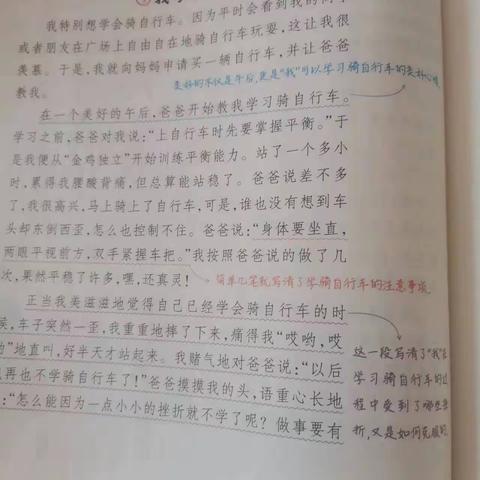 我特别想学会骑自行车。因为平时会看到我的同学
或者朋友在广场上自由自在地骑自行车玩耍,这让我很
羡慕。于是,我就向妈妈申请买一辆自行车,并让爸爸
教我。
美好的不仅是午后,更是“我”可以学习骑自行车的美好心情
在一个美好的午后,爸爸开始教我学习骑自行车。
学习之前,爸爸对我说:“上自行车时先要掌握平衡。”于
是我便从“金鸡独立”开始训练平衡能力。站了一个多小
时,累得我腰酸背痛,但总算能站稳了。爸爸说差不多
了,我很高兴,马上骑上了自行车,可是,谁也没有想到车
头却东倒西歪,怎么也控制不住。爸爸说:“身体要坐直,
两眼平视前方,双手紧握车把。”我按照爸爸说的做了几
次,果然平稳了许多,嘿,还真灵!
简单几笔就写清了学骑自行车的注意事项
正当我美滋滋地觉得自己已经学会骑自行车的时
候,车子突然一歪,我重重地摔了下来,痛得我“哎哟,哎
哟”地直叫,好半天才站起来。我赌气地对爸爸说:“以后
再也不学骑自行车了!”爸爸摸摸我的头,语重心长地
:“怎么能因为一点小小的挫折就不学了呢?做事要有
这一段写清了“我”在
学习骑自行车的过
程中受到了哪些挫
折,又是如何克服的